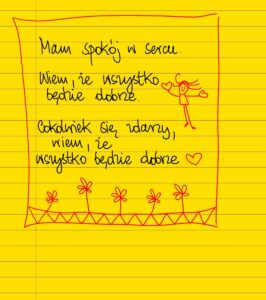 Mam spokój w sercu.
Wiem, że wszystko
będzie dobrze.
Cokolwiek się zdarzy,
wiem, że
wszystko będzie dobrze